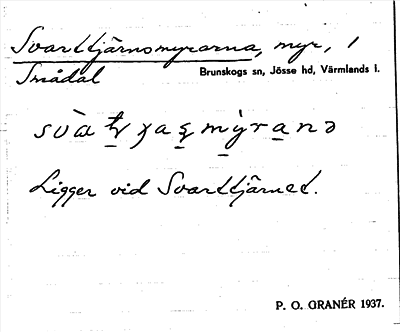 Svarttjärnsmyrarna, myr, 1
Smådal
Brunskogs sn, Jösse hd, Värmlands l.
Ligger vid Svarttjärnet.
P. O. GRANÉR 1937.